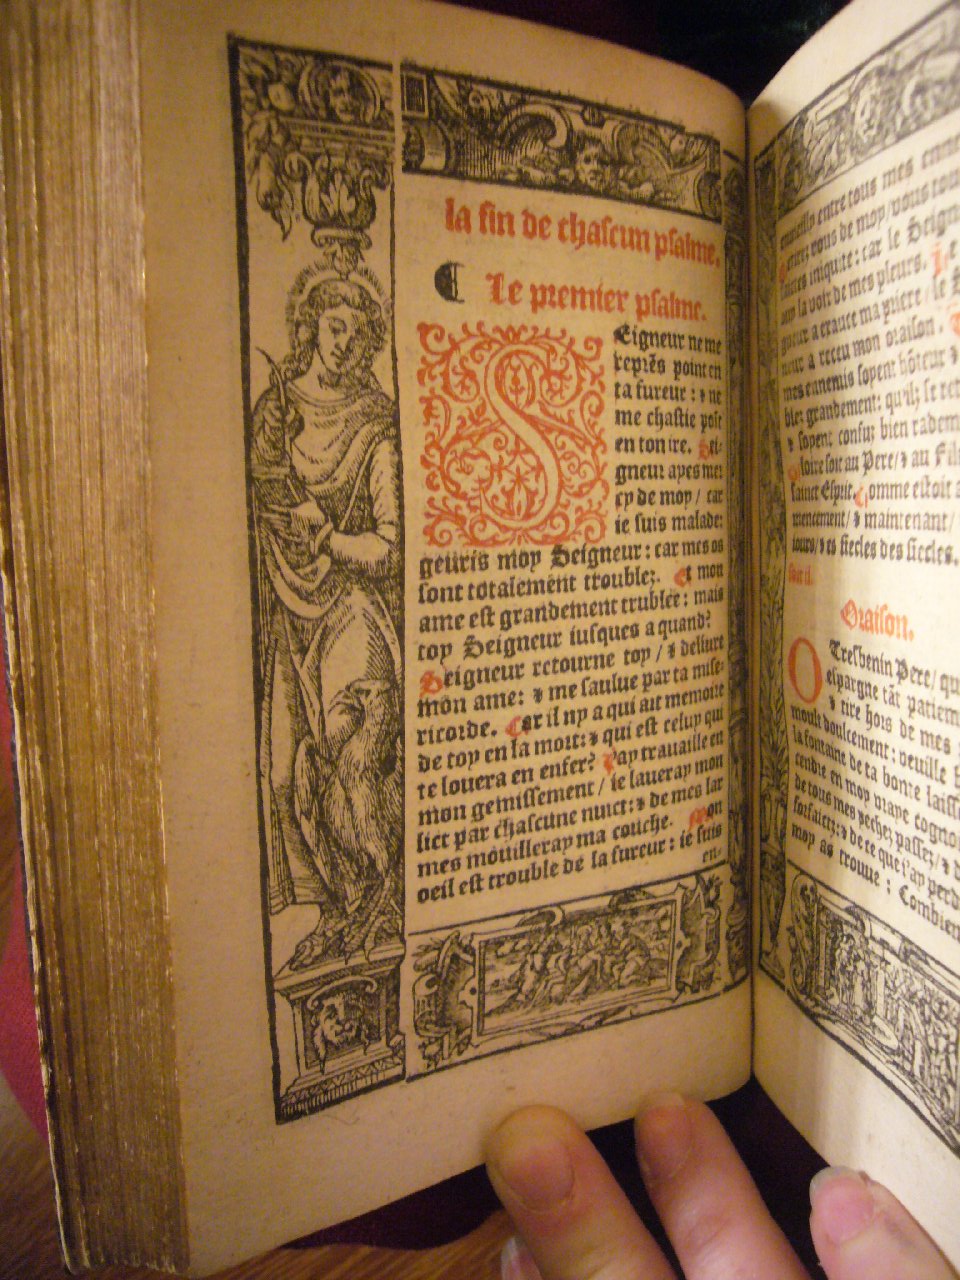 la fin de chascun psalme.
Le premier psalme.
Seigneur ne me
reprẽs point en
ta fureur : ⁊ ne
me chastie poĩt
en ton ire. Sei-
gneur ayes mer
cy de moy / car
ie suis malade:
gueuris moy Seigneur : car mes os
sont totalement troublez. Et mon
ame est grandement trublee : mais
toy Seigneur iusques a quand?
Seigneur retourne toy / ⁊ deliure
mon ame: ⁊ me saulue par ta mise-
ricorde. Car il ny a qui ait memoire
de toy en la mort: ⁊ qui est celuy qui
te louera en enfer? Iay trauaille en
mon gemissement / ie laueray mon
lict par chascune nuict: ⁊ de mes lar
mes mouilleray ma couche. Mon
oeil est trouble de la fureur : ie suis
en-
enuieilly entre tous mes enne
rriere vous de moy / vous tou
iniquite : car le Seign
ouy la voix de mes pleurs. Le
gneur a exauce ma priere / le S
neur a receu mon oraison.
mes ennemis soyent hõteux ⁊
blez grandement: qu'ilz se ret
⁊ soyent confuz bien rademe
Gloire soit au Pere / ⁊ au Filz
sainct Esprit. Comme estoit a
mencement / ⁊ maintenant /
iours / ⁊ es siecles des siecles.
Oraison.
O Tresbenin Pere / qu
espargne tãt patiem
⁊ tire hors de mes
moult doulcement : veuille
la fontaine de ta bonte laiss
en moy vraye cognoi
de tous mes pechez passez / ⁊ d
forfaictz: ⁊ de ce que i'ay perd
moy as trouue ; Combien